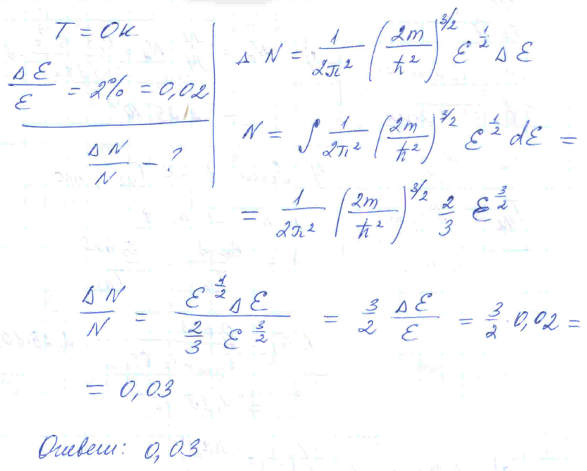 T = 0К
ΔE/E = 2% = 0,02
ΔN/N - ?
ΔN = 1/2π² (2m/ħ²)^3/2 E^1/2 ΔE
N = ∫ 1/2π² (2m/ħ²)^3/2 E^1/2 dE =
= 1/2π² (2m/ħ²)^3/2 2/3 E^3/2
ΔN/N = E^1/2 ΔE / 2/3 E^3/2 = 3/2 ΔE/E = 3/2 · 0,02 =
= 0,03
Ответ: 0,03